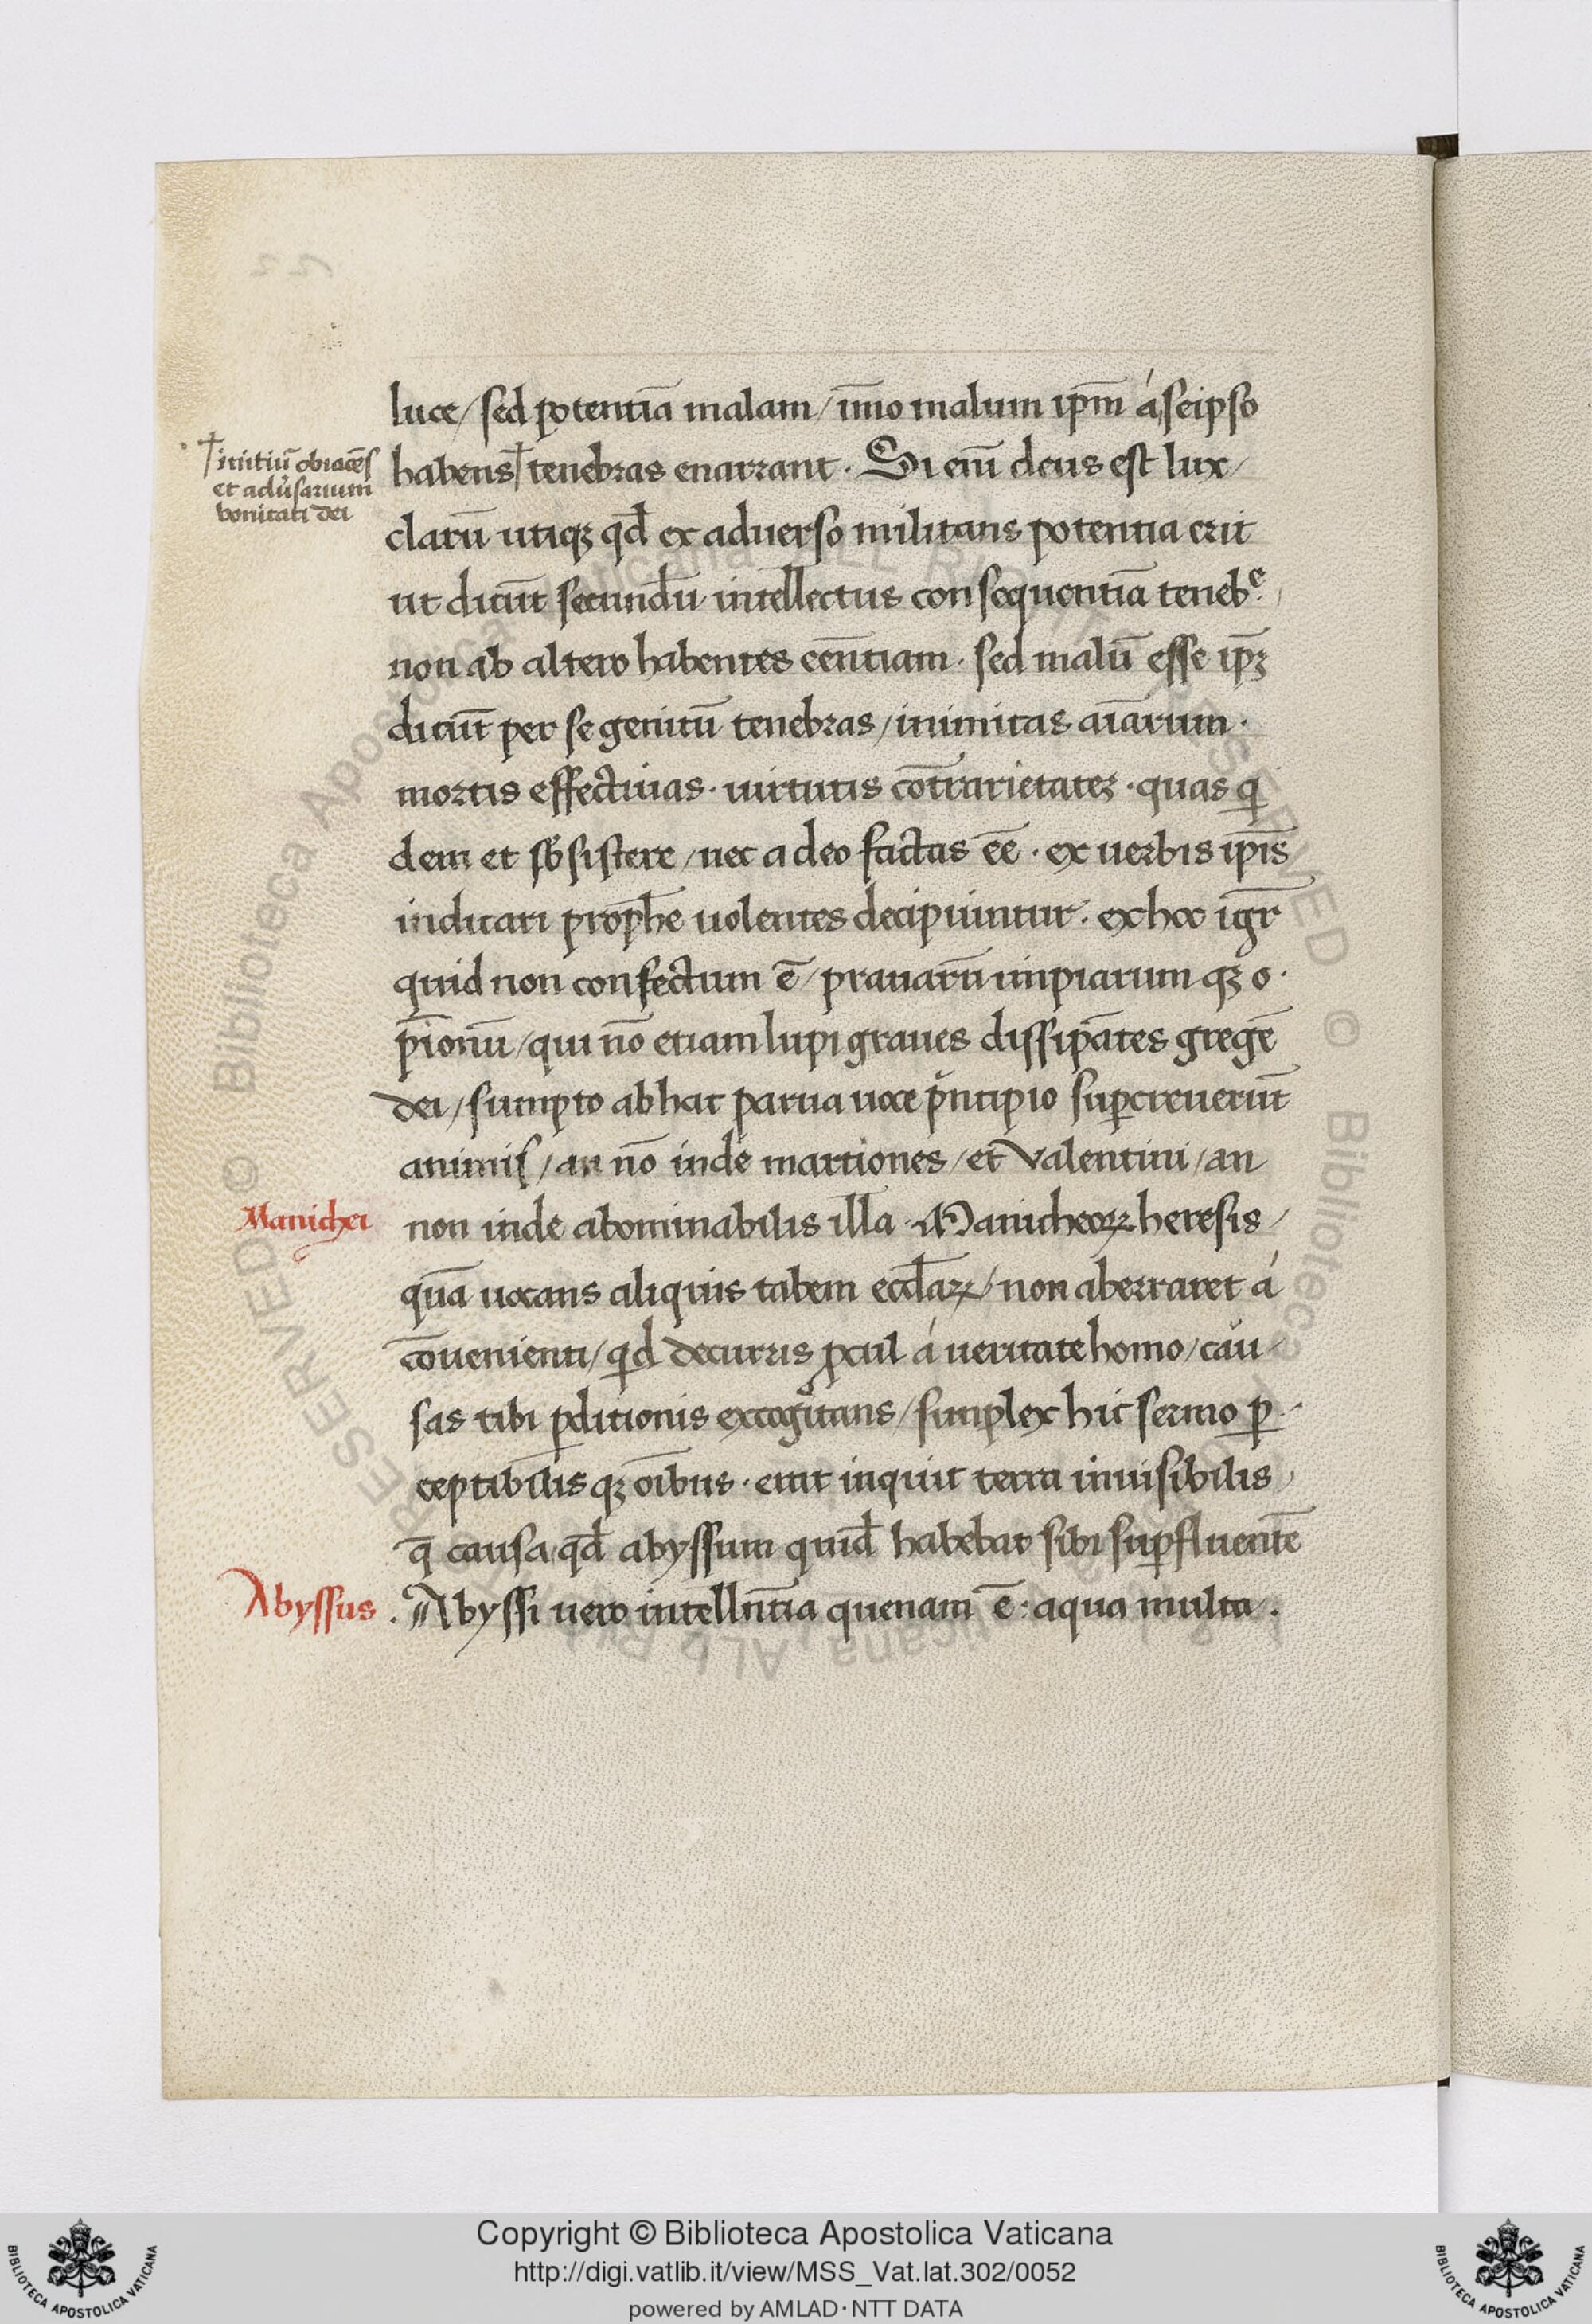 luce / sed potentiā malam / īmo malum ip̄m á seipso
†initiū obiacēs
et adūsarium
bonitati dei
habens† tenebras enarrant · Si eīn deus est lux /
clarū utiqꝫ qd̄ ex aduerso militans potentia erit
ut dicūt secund̄u intellectus consequentiā tenebᵉ.
non ab altero habentes eēntiam · sed malū esse ip̄ꝫ
dicūt per se genitū tenebras / inimicas aīarum ·
mortis effectiuas · uirtutis cōtrarietateꝫ · quas qi
dem et sb̄sistere / nec a deo factas ēē · ex uerbis ip̄is
indicari proph̄e uolentes decipiuntur · ex hoc igr̄
quid non confectum ē / prauarū impiarum qꝫ o ·
p̄ionū / qui nō etiam lupi graues dissipātes gregē
dei / sumpto ab hac parua uoce p̄ncipio suꝑcreuerūt
animis / an nō inde martiones / et Valentini / an
Manichei
non inde abominabilis illa Manicheoꝝ heresis /
quā uocans aliquis tabem eccl̄aꝝ / non aberraret á
cōuenienti / qid decurris ꝓcul á ueritate homo / cau
sas tibi ꝑditionis excogitans / simplex hic sermo ꝑ
ceptibilis qꝫ oībus · erat inquit terra inuisibilis
q̄ causa qd̄ abyssum quid̄ habebat sibi suꝑfluentē
Abyssus
. Abyssi uero intelln̄tia quenam ē · aqua multa ·
Copyright © Biblioteca Apostolica Vaticana
http://digi.vatlib.it/view/MSS_Vat.lat.302/0052
powered by AMLAD·NTT DATA